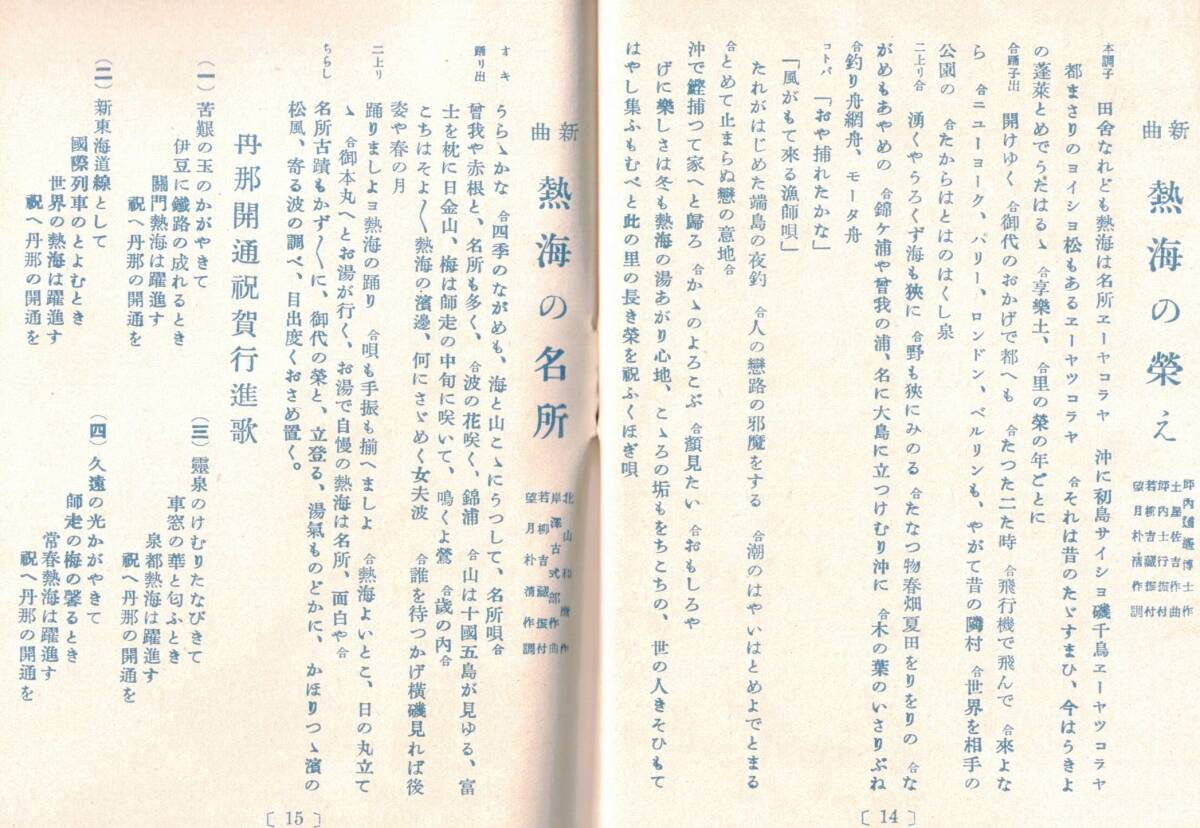 新曲 熱海の榮え
坪內逍遙博士作
土屋佐吉作曲
坪內士行振付
若柳吉藏振付
望月朴淸作調
本調子 田舍なれども熱海は名所ヱーヤコラヤ 沖に初島サイショ磯千鳥ヱーヤツコラヤ
都まさりのヨイショ松もあるヱーヤツコラヤ 合それは昔のたゞすまひ、今はうきよ
の蓬萊とめでうたはるゝ 合享樂土、合里の榮の年ごとに
合踊子出 開けゆく 合御代のおかげで都へも 合たつた二た時 合飛行機で飛んで 合來よな
ら 合ニユーヨーク、パリー、ロンドン、ベルリンも、やがて昔の隣村 合世界を相手の
公園の 合たからはとはのはくし泉
二上り合 湧くやうろくず海も狹に 合野も狹にみのる 合たなつ物春畑夏田をりをりの 合な
がめもあやめの 合錦ケ浦や曾我の浦、名に大島に立つけむり沖に 合木の葉のいさりぶね
合釣り舟網舟、モータ舟
コトバ 「おや捕れたかな」
「風がもて來る漁師唄」
たれがはじめた端島の夜釣 合人の戀路の邪魔をする 合潮のはやいはとめよでとまる
合とめて止まらぬ戀の意地合
沖で鰹捕つて家へと歸ろ 合かゝのよろこぶ 合顏見たい 合おもしろや
げに樂しさは冬も熱海の湯あがり心地、こゝろの垢もをちこちの、世の人きそひもて
はやし集ふもむべと此の里の長き榮を祝ふくほぎ唄
〔14〕
新曲 熱海の名所
北山和麿作
岸澤古式部作曲
若柳吉藏振付
望月朴淸作調
オキ うらゝかな 合四季のながめも、海と山こゝにうつして、名所唄合
踊り出 曾我や赤根と、名所も多く、合波の花咲く、錦浦 合山は十國五島が見ゆる、富
士を枕に日金山、梅は師走の中旬に咲いて、鳴くよ鶯 合歲の內合
こちはそよ〳〵熱海の濱邊、何にさゞめく女夫波 合誰を待つかげ橫磯見れば後
姿や春の月
二上リ 踊りましよヨ熱海の踊り 合唄も手振も揃へましよ 合熱海よいとこ、日の丸立て
ゝ 合御本丸へとお湯が行く、お湯で自慢の熱海は名所、面白や合
ちらし 名所古蹟もかず〳〵に、御代の榮と、立登る、湯氣ものどかに、かほりつゝ濱の
松風、寄る波の調べ、目出度くおさめ置く。
丹那開通祝賀行進歌
(一) 苦艱の玉のかがやきて
伊豆に鐵路の成れるとき
關門熱海は躍進す
祝へ丹那の開通を
(二) 新東海道線として
國際列車のとよむとき
世界の熱海は躍進す
祝へ丹那の開通を
(三) 靈泉のけむりたなびきて
車窓の華と匂ふとき
泉都熱海は躍進す
祝へ丹那の開通を
(四) 久遠の光かがやきて
師走の梅の馨るとき
常春熱海は躍進す
祝へ丹那の開通を
〔15〕